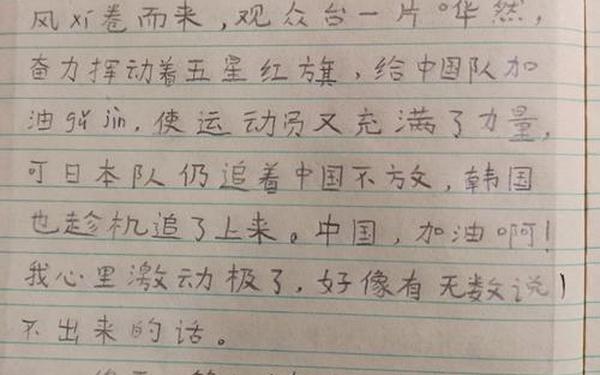 风xí卷而来,观众台一片哗然,
奋力挥动着五星红旗,给中国队加
油gǔ jìn,使运动员又充满了力量,
可日本队仍追着中国不放,韩国
也趁机追了上来。中国,加油啊!
我心里激动极了,好像有无数说
不出来的话。